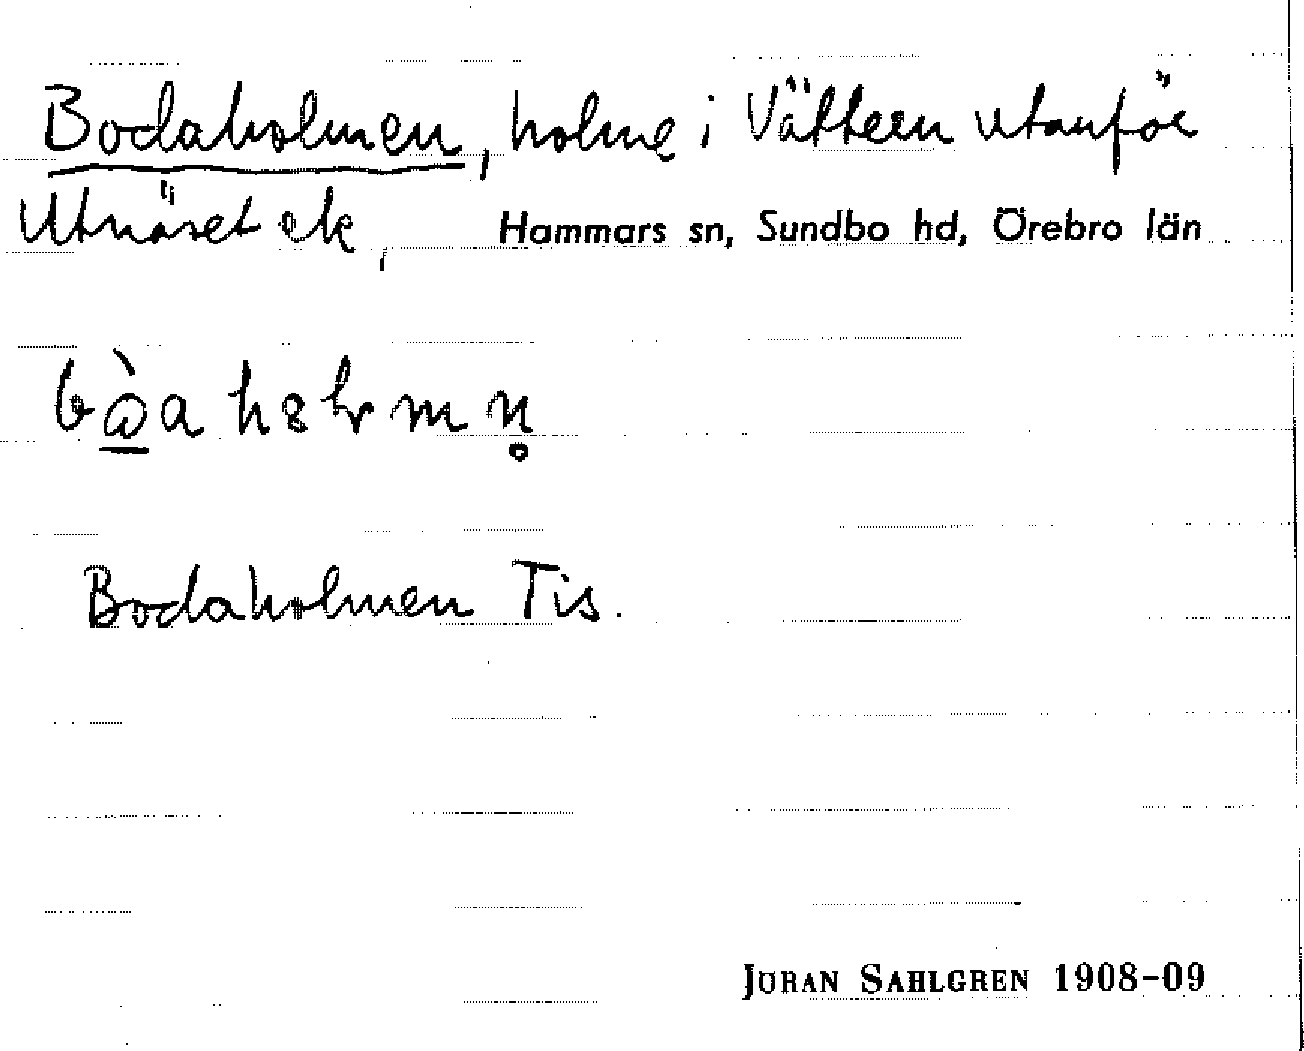 Bodaholmen, holme i Vättern utanför
Utnäset ek, Hammars sn, Sundbo hd, Örebro län
Bodaholmen Tis.
JÖRAN SAHLGREN 1908-09